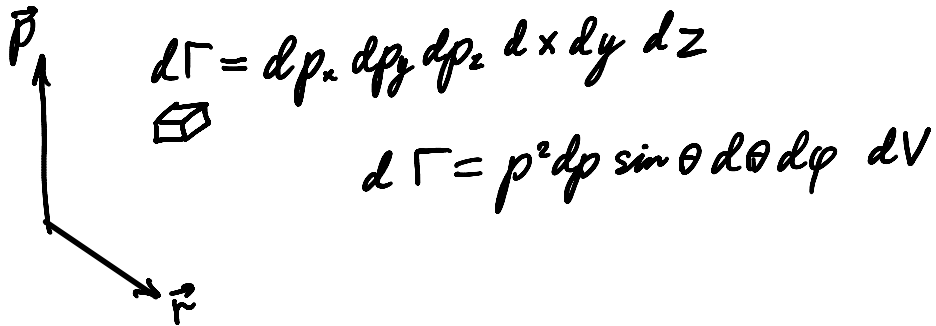 p⃗
dΓ = dpₓ dp_y dp_z dx dy dz
dΓ = p² dp sin θ dθ dφ dV
r⃗